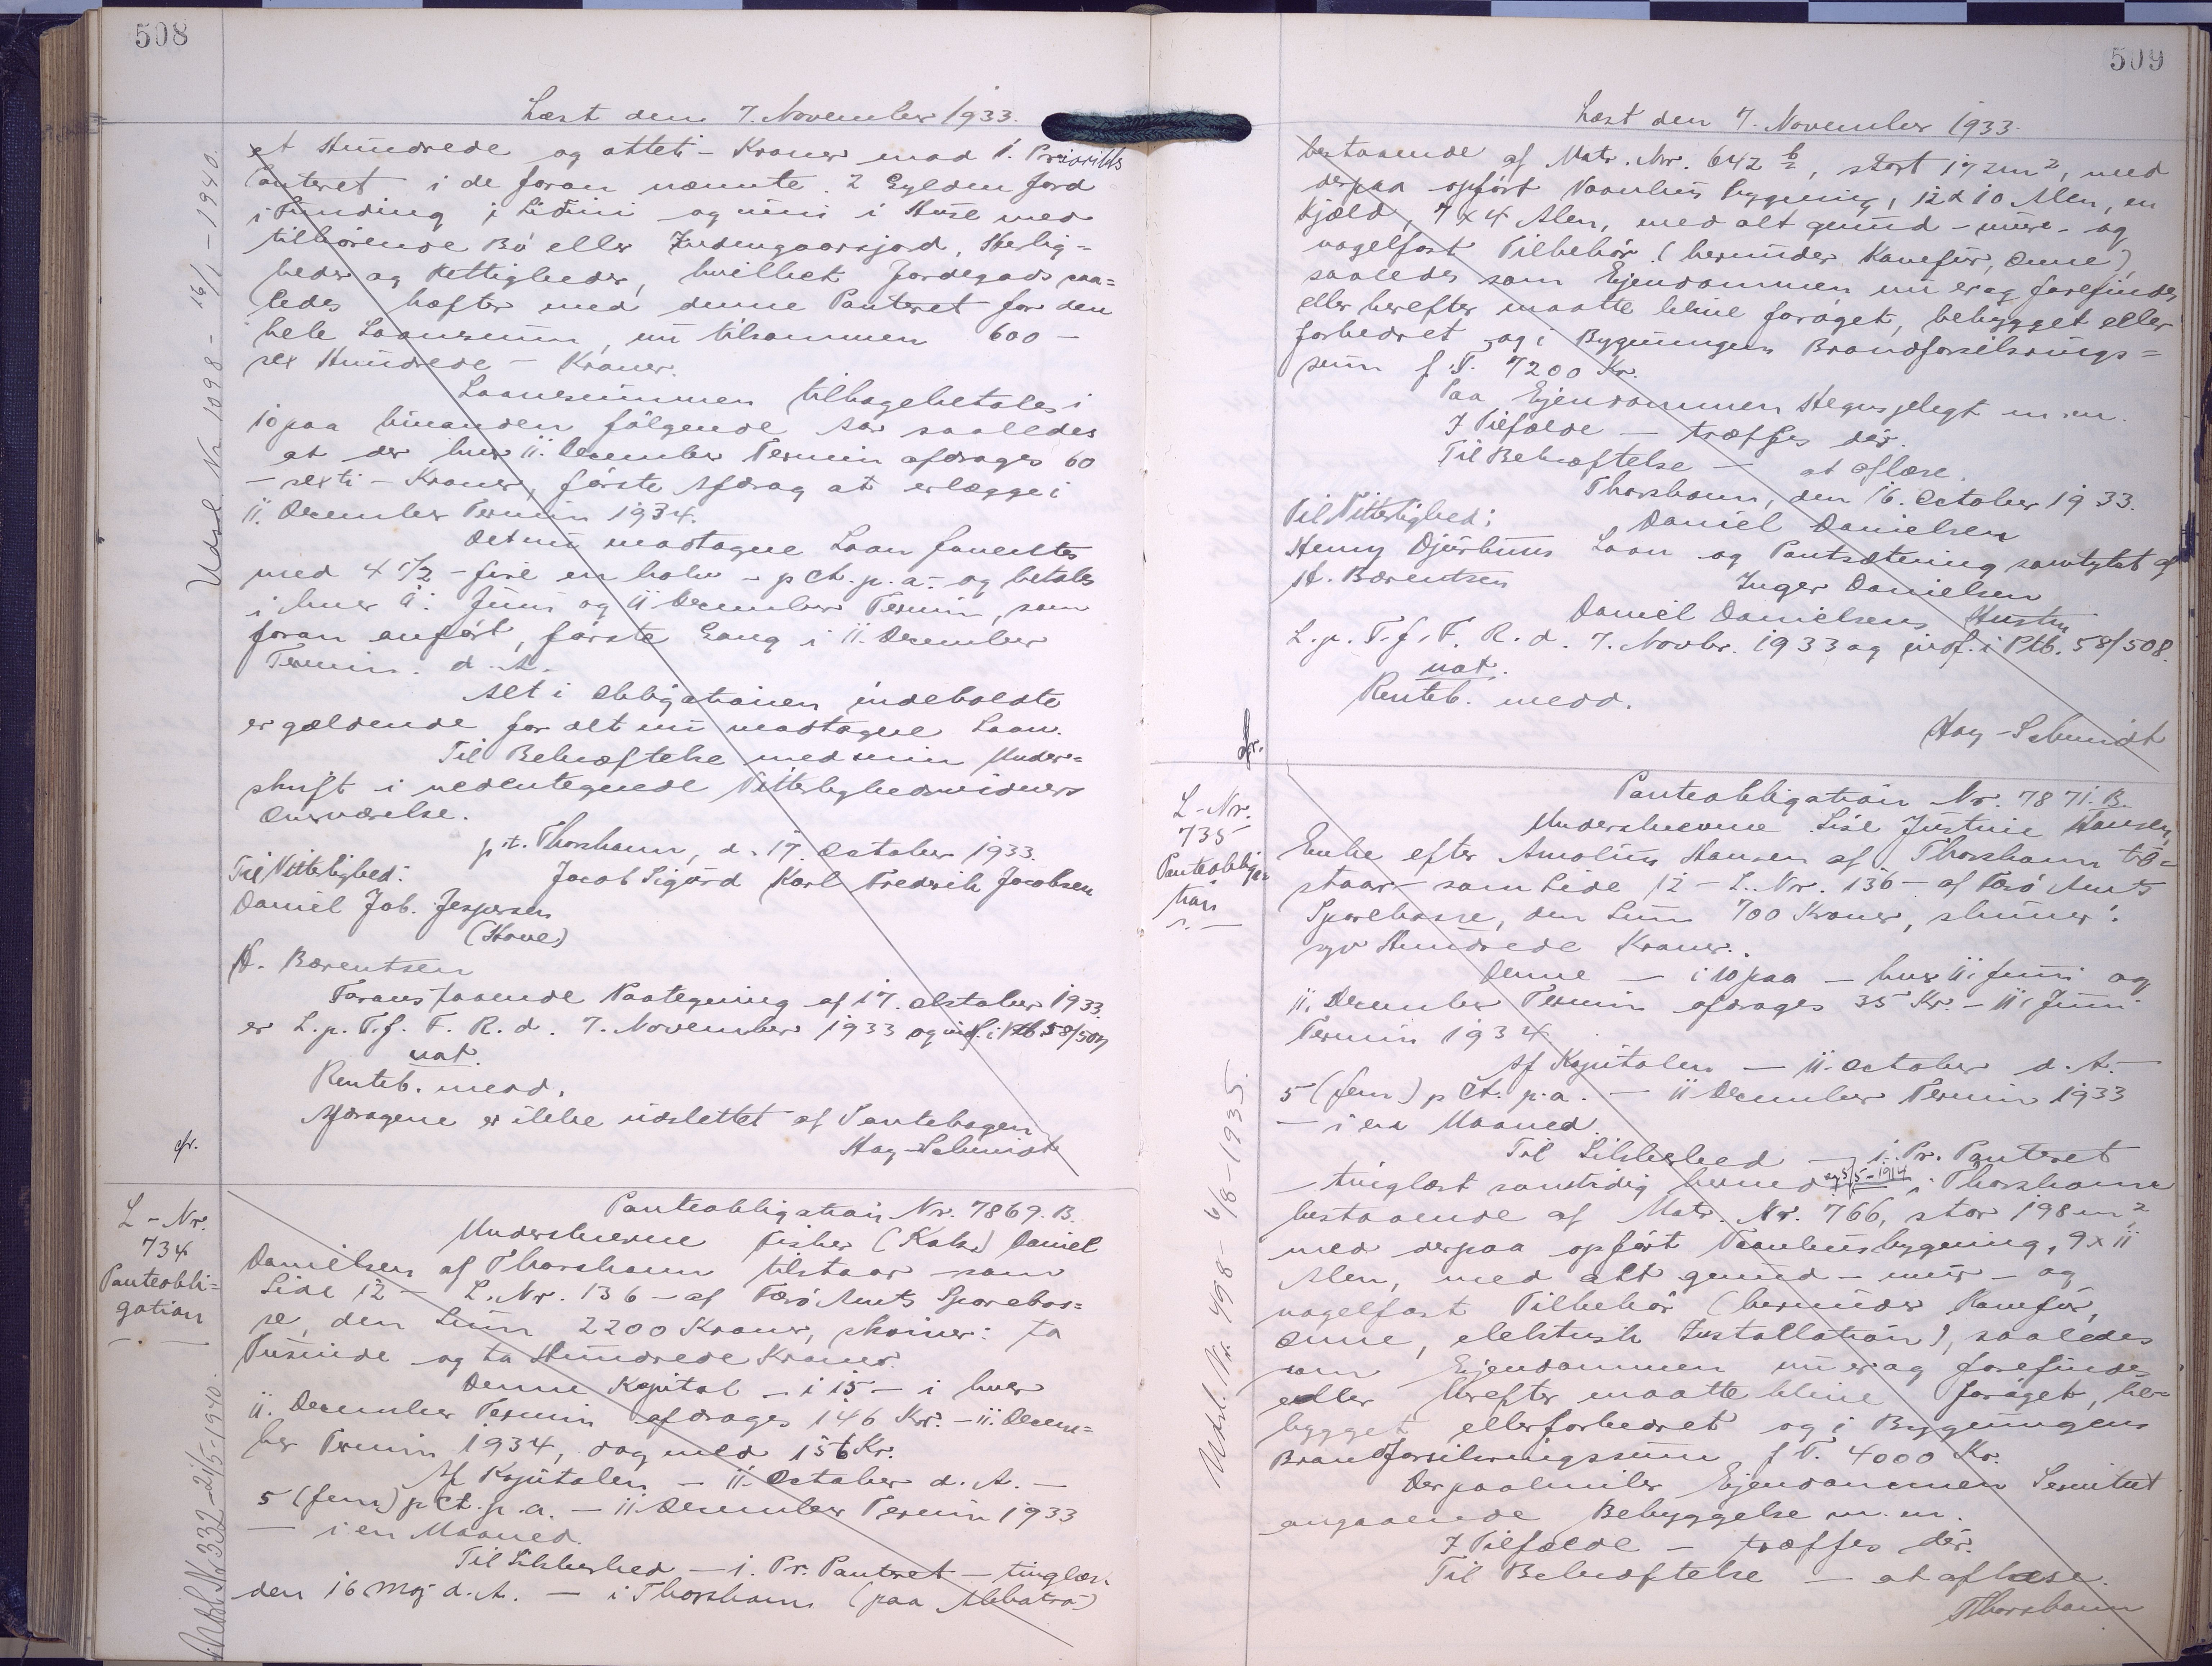 508
Læst den 7. November 1933.
et Hundrede og otteti - Kroner mod 1. Prioritets
Panteret i de foran nævnte 2 Gylden Jord
i Funding i Liðini og uni i Húse med
tilhørende Bø eller Indengaarsjord, Herlig=
heder og Rettigheder, hvilket Jordegods saa=
ledes hæfter med denne Panteret for den
hele Laanesum, nu tilsammen 600 -
sex Hundrede - Kroner.
Laanesummen tilbagebetales i
10 paa hinanden følgende Aar saaledes
at der hver 11. December Termin afdrages 60
- sexti - Kroner, første Afdrag at erlægge i
11. December Termin 1934.
Det nu modtagne Laan forrentes
med 4 1/2 - fire en halv - p Ct. p. a. - og betales
i hver 11. Juni og 11 December Termin, som
foran anført, første Gang i 11. December
Termin d. A.
Alt i Obligationen indeholdte
er gældende for det nu modtagne Laan.
Til Bekræftelse med min Under=
skrift i nedentegnede Vitterlighedsvidners
Overværelse.
p. t. Thorshavn, d. 17. October 1933.
Til Vitterlighed: Jacob Sigurd Karl Fredrik Jacobsen
Daniel Jab. Jespersen
(Hove)
H. Bærentsen
Foranstaaende Paategning af 17. October 1933.
er L. p. T. f. F. R. d. 7. November 1933 og indf. i Ptb. 58/507
not.
Renteb. medd.
Afdragene er ikke udslettet af Pantebogen
Hay-Schmidt
Udsl. Nr 1098 - 16/1 - 1940.
cfr.
L - Nr.
734
Panteobli=
gation
Panteobligation Nr. 7869. B.
Underskrevne Fisker (Kalsø) Daniel
Danielsen af Thorshavn tilstaar - som
Side 12 - L. Nr. 136 - af Færø Amts Sparekas=
se, den Sum 2200 Kroner, skriver: to
Tusinde og to Hundrede Kroner.
Denne Kapital - i 15 - i hver
11. December Termin afdrages 146 Kr. - 11. Decem=
ber Termin 1934, dog med 156 Kr.
Af Kapitalen - 11. October d. A. -
5 (fem) p Ct. p. a. - 11 December Termin 1933
- i en Maaned.
Til Sikkerhed - 1. Pr. Panteret - tinglæst
den 16 Maj d. A. - i Thorshavn (paa Abbatrø)
Udsl. Nr 332 - 21/5 - 1940.
509
Læst den 7. November 1933.
bestaaende af Matr. Nr. 642 b, stort 172 m², med
derpaa opført Vaanhus bygning, 12 x 10 Alen, en
Kjæld, 7 x 4 Alen, med alt grund - mur - og
nagelfast Tilbehør (herunder Komfur, Ovne)
saaledes som Ejendommen nu er og forefindes,
eller herefter maatte blive forøget, bebygget eller
forbedret og i Bygningens Brandforsikrings=
sum f. T. 7200 Kr.
Paa Ejendommen Hegnspligt m. m.
I Tilfælde - træffes dér.
Til Bekræftelse - at aflæse.
Thorshavn, den 16. October 1933.
Til Vitterlighed: Daniel Danielsen
Henry Djurhuus Laan og Pantsætning samtykt af
H. Bærentsen Inger Danielsen
Daniel Danielsens Hustru
L. p. T. f. F. R. d. 7. Novbr. 1933 og indf. i Ptb. 58/508.
not.
Renteb. medd.
Hay-Schmidt
cfr.
L - Nr.
735
Panteobliga=
tion
Panteobligation Nr. 7871. B.
Underskrevne Lise Justine Hansen,
Enke efter Amolius Hansen af Thorshavn til=
staar - som Side 12 - L. Nr. 136 - af Færø Amts
Sparekasse, den Sum 700 Kroner, skriver:
syv Hundrede Kroner.
Denne - i 10 paa - hver 11. Juni og
11. December Termin afdrages 35 Kr. - 11. Juni
Termin 1934.
Af Kapitalen - 11. October d. A. -
5 (fem) p Ct. p. a. - 11 December Termin 1933
- i en Maaned.
Til Sikkerhed - 1. Pr. Panteret
- tinglæst samtidig hermed og 5/5 - 1914 i Thorshavn
bestaaende af Matr. Nr. 766, stor 198 m²,
med derpaa opført Vaanhusbygning, 9 x 11
Alen, med alt grund - mur - og
nagelfast Tilbehør (herunder Komfur,
Ovne, elektrisk Installation), saaledes
som Ejendommen nu er og forefindes
eller herefter maatte blive forøget, be=
bygget eller forbedret og i Bygningens
Brandforsikringssum f. T. 4000 Kr.
Der paahviler Ejendommen Servitut
angaaende Bebyggelse m. m.
I Tilfælde - træffes dér.
Til Bekræftelse - at aflæse.
Thorshavn
Udsl. Nr. 498 - 6/8 - 1935.